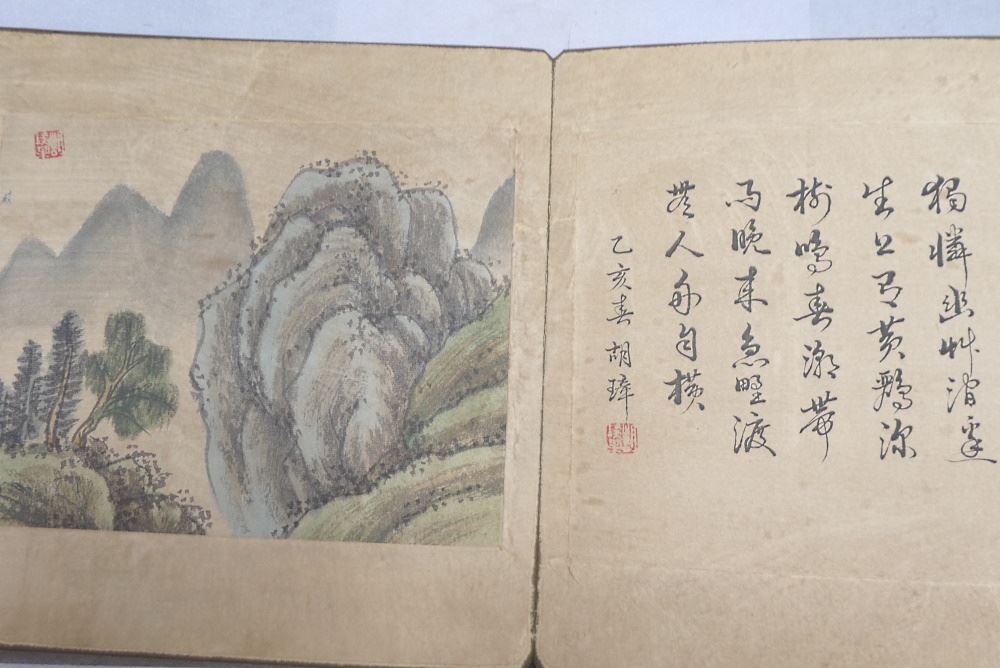 獨憐幽艸澗邊
生上有黃鸝深
樹鳴春潮帶
雨晚來急野渡
無人舟自橫
乙亥春 胡璋